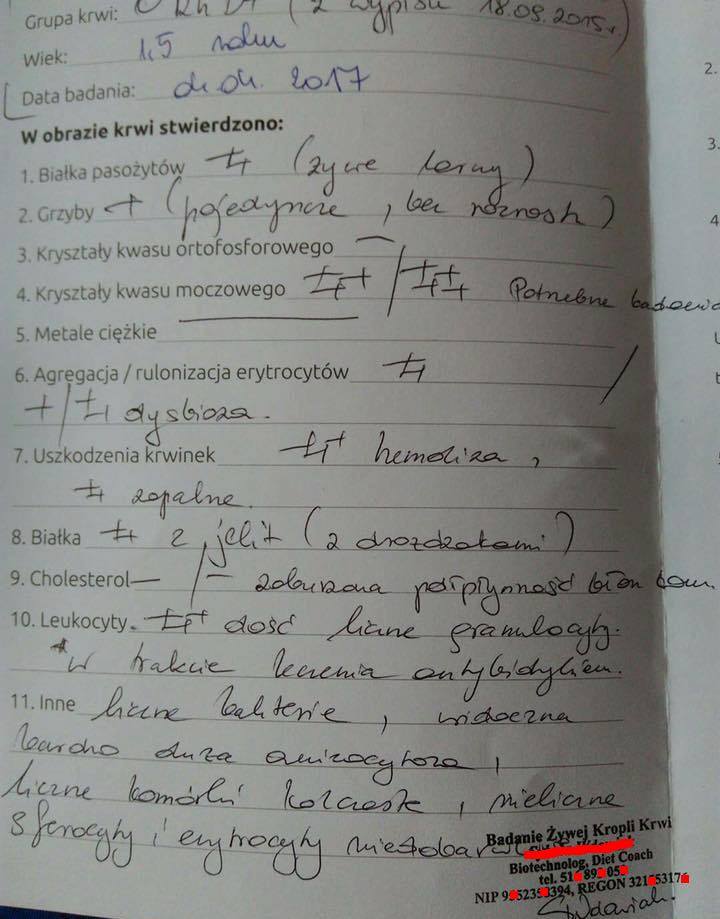 Grupa krwi: O Rh D+ (z wypisu 18.09.2015r)
Wiek: 1,5 roku
Data badania: 2017
W obrazie krwi stwierdzono:
1. Białka pasożytów ++ (żywe larwy)
2. Grzyby + (pojedyncze, bez
3. Kryształy kwasu ortofosforowego —
4. Kryształy kwasu moczowego +++/++++ Potrzebne badania
5. Metale ciężkie
6. Agregacja / rulonizacja erytrocytów ++ /
+/++ dysbioza.
7. Uszkodzenia krwinek +++ hemoliza,
++ zapalne.
8. Białka ++ z jelit (z drożdżakami)
9. Cholesterol — /— zaburzona półpłynność błon kom.
10. Leukocyty. +++ dość liczne granulocyty.
* w trakcie leczenia antybiotykiem.
11. Inne liczne bakterie, widoczna
bardzo duża anizocytoza,
liczne komórki kolczaste, nieliczne
sferocyty i erytrocyty
Badanie Żywej Kropli Krwi
Biotechnolog, Diet Coach
tel. 51 89 05
NIP 9 523 394, REGON 321 5317
2.
3.
4